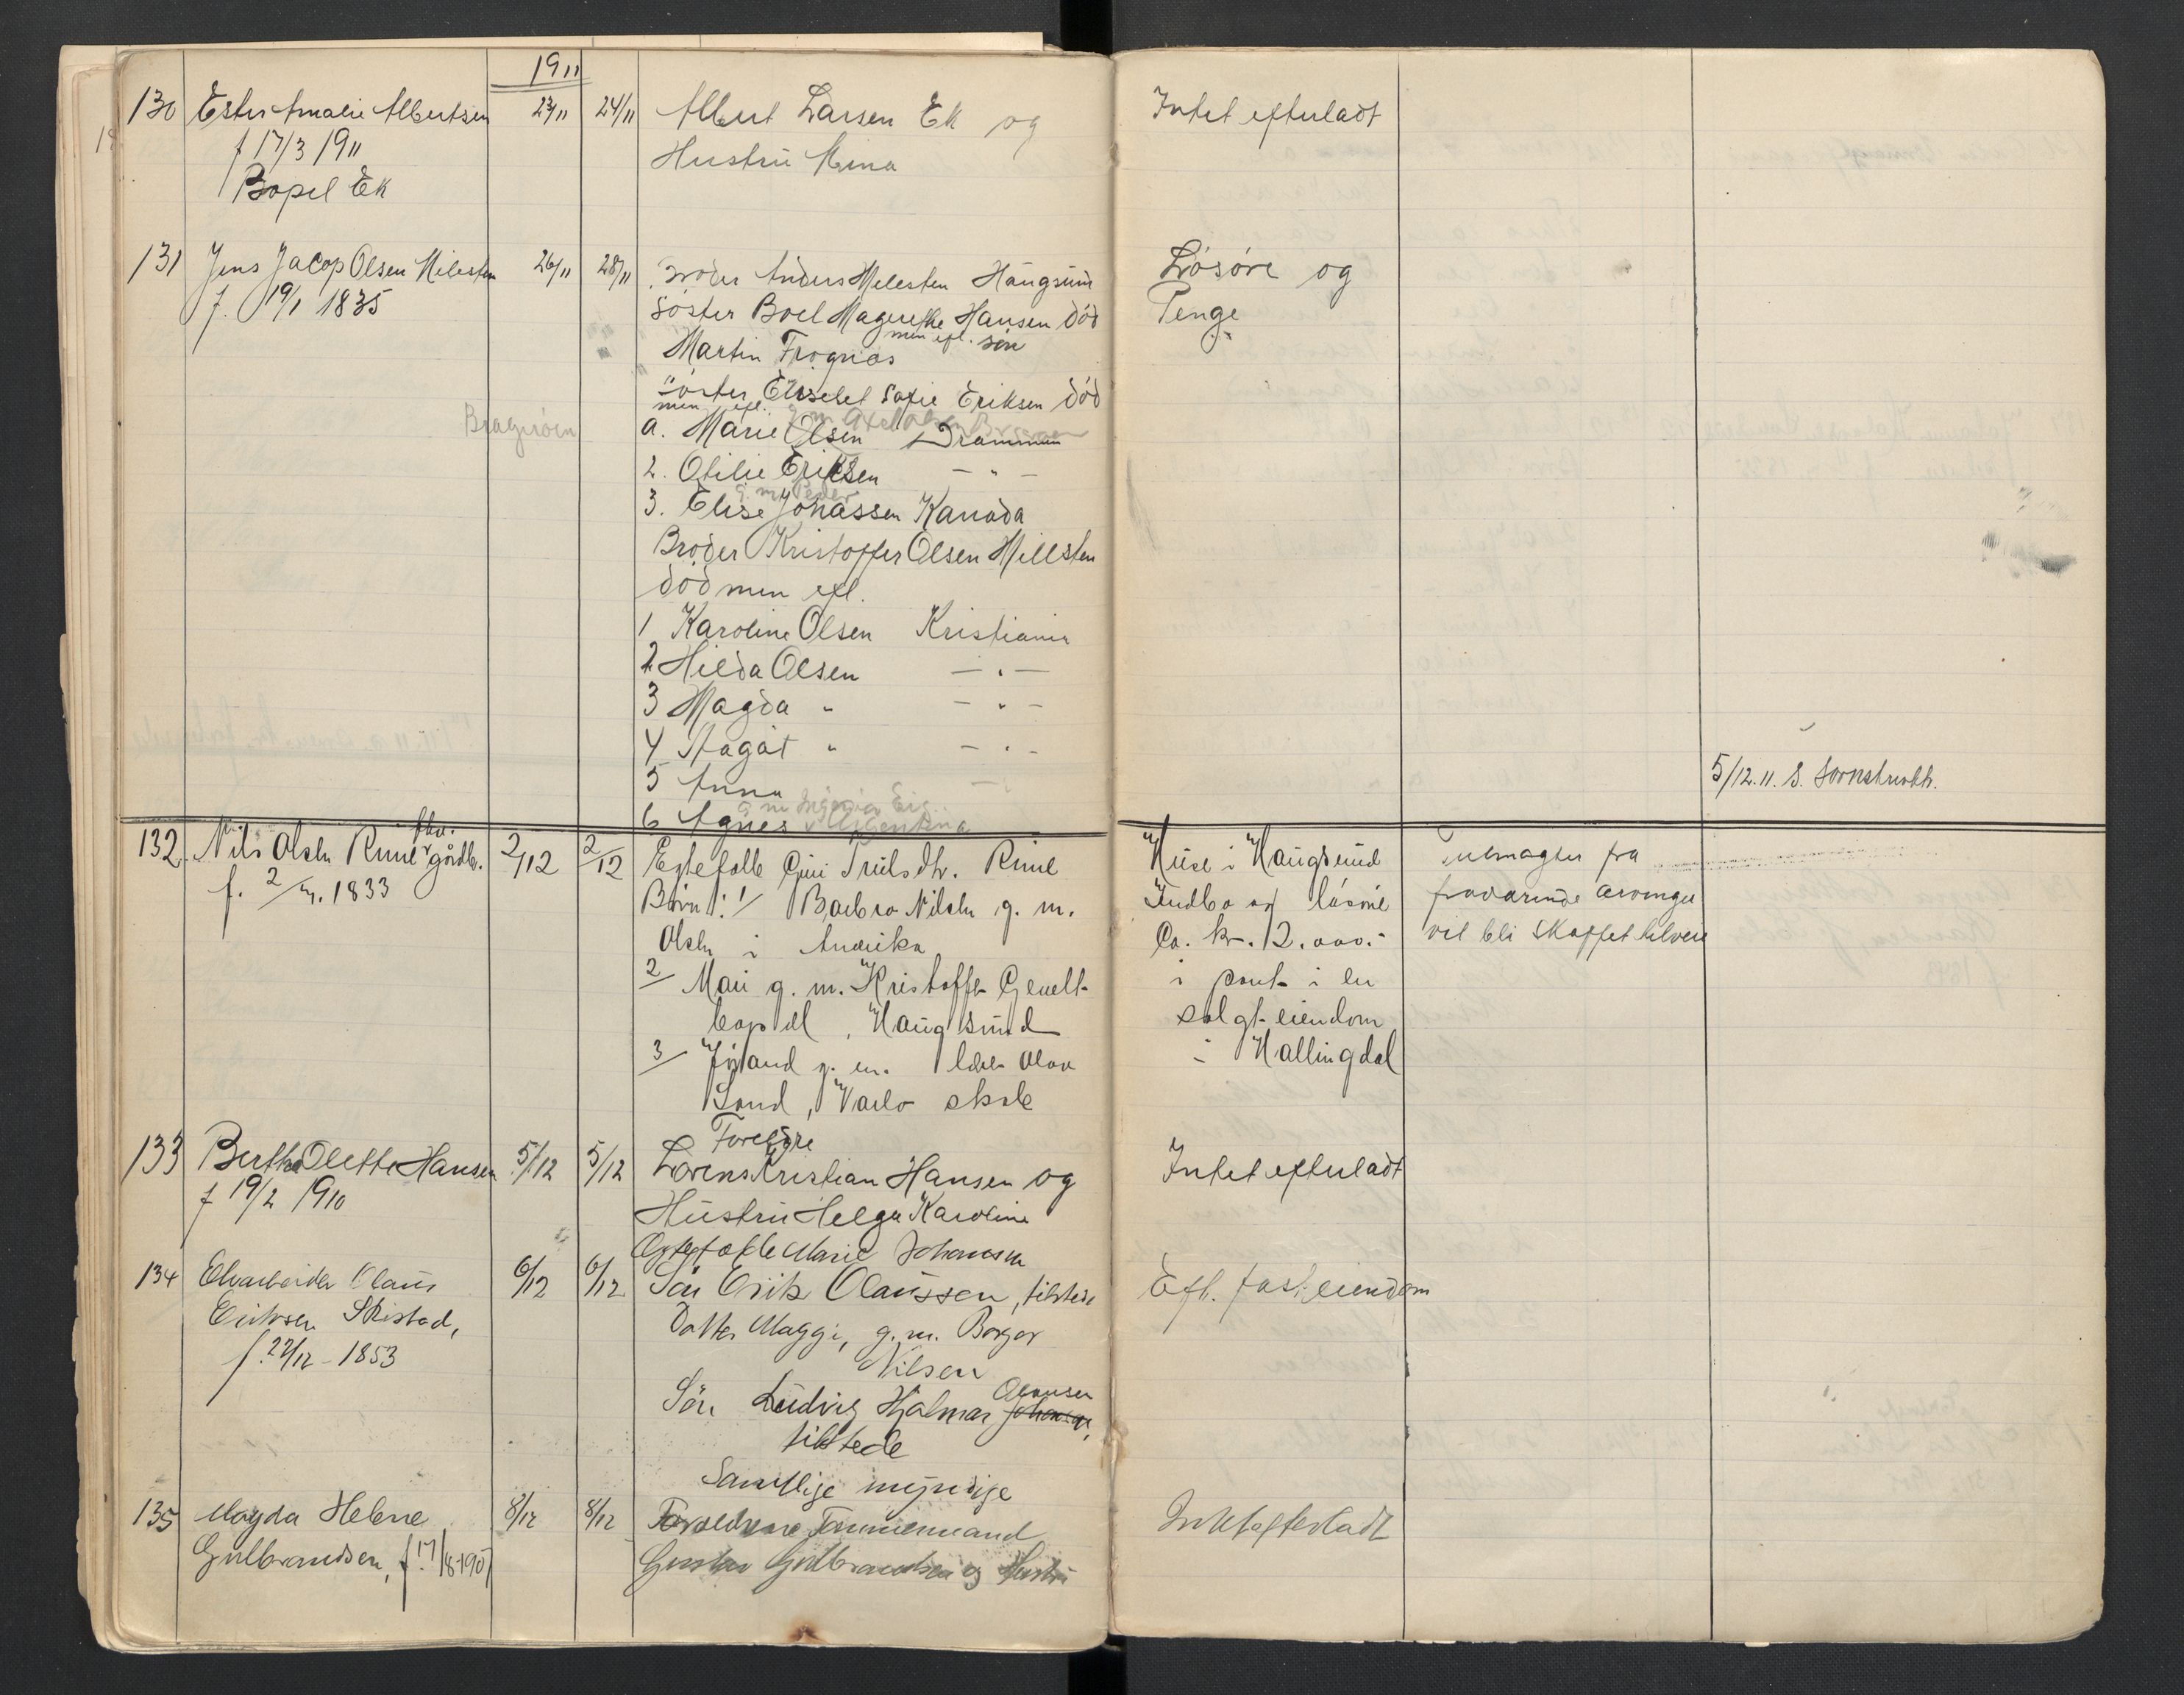 1911
130 Ester Amalie Albertsen 23/11 24/11 Albert Larsen Ek og Intet efterladt
f 17/3 1911 Hustru Mina
Bopel Ek
131 Jens Jacop Olsen Melesten 26/11 28/11 Broder Anders Melesten Haugsund Lösöre og
f. 19/1 1835 Söster Boel Magrethe Hansen död Penge
men efl. sön
Martin Frognæs
Söster Elisebet Sofie Eriksen död
men efl.
Bragerøen
a. Marie Olsen Drammen
2. Otilie Eriksen — " —
g. m. Peder
3. Elise Johassen Kanada
Broder Kristoffer Olsen Millsten
död men efl.
1 Karoline Olsen Kristiania
2 Hilda Olsen — " —
3 Magda " — " —
4 Aagåt " — " —
5 Anna —
5/12.11. S.
6 Agnes Argentina
132 Nils Olsen Rime fhv. gårdbr. 2/12 2/12 Egtefælle Guri Trulsdtr. Rime Huse i Haugsund Fulmagter fra
f. 2/4. 1833 Börn: 1/ Barbro Nilsdr g. m. Indbo og lösöre fraværende arvinger
Olsen i Amerika Ca. kr. 12.000.- vil bli skaffet tilveie
2/ Mari g. m. Kristoffer i pant i en
Haugsund solgt eiendom
3/ g. m. Olav i Hallingdal
Sand, Varlo skole
Foreldre
133 Berthe Olette Hansen 5/12 5/12 Lorens Kristian Hansen og Intet efterladt
f 19/2 1910 Hustru Helga Karoline
Ægtefælle Marie Johansen
134 Elvarbeider Claus 6/12 6/12 Sön Erik Claussen, tilstede Eft. fast eiendom
Eriksen Skistad, Datter Maggi, g. m. Borger
f. 22/12 - 1853 Nilsen
Sön Ludvig Hjalmar Johansen Clausen,
tilstede
Samtlige myndige
135 Magda Helene 8/12 8/12 Forældrene Tømmermand Intet efterladt
Gulbrandsen, f. 17/8-1907 Gustav Gulbrandsen og Hustru